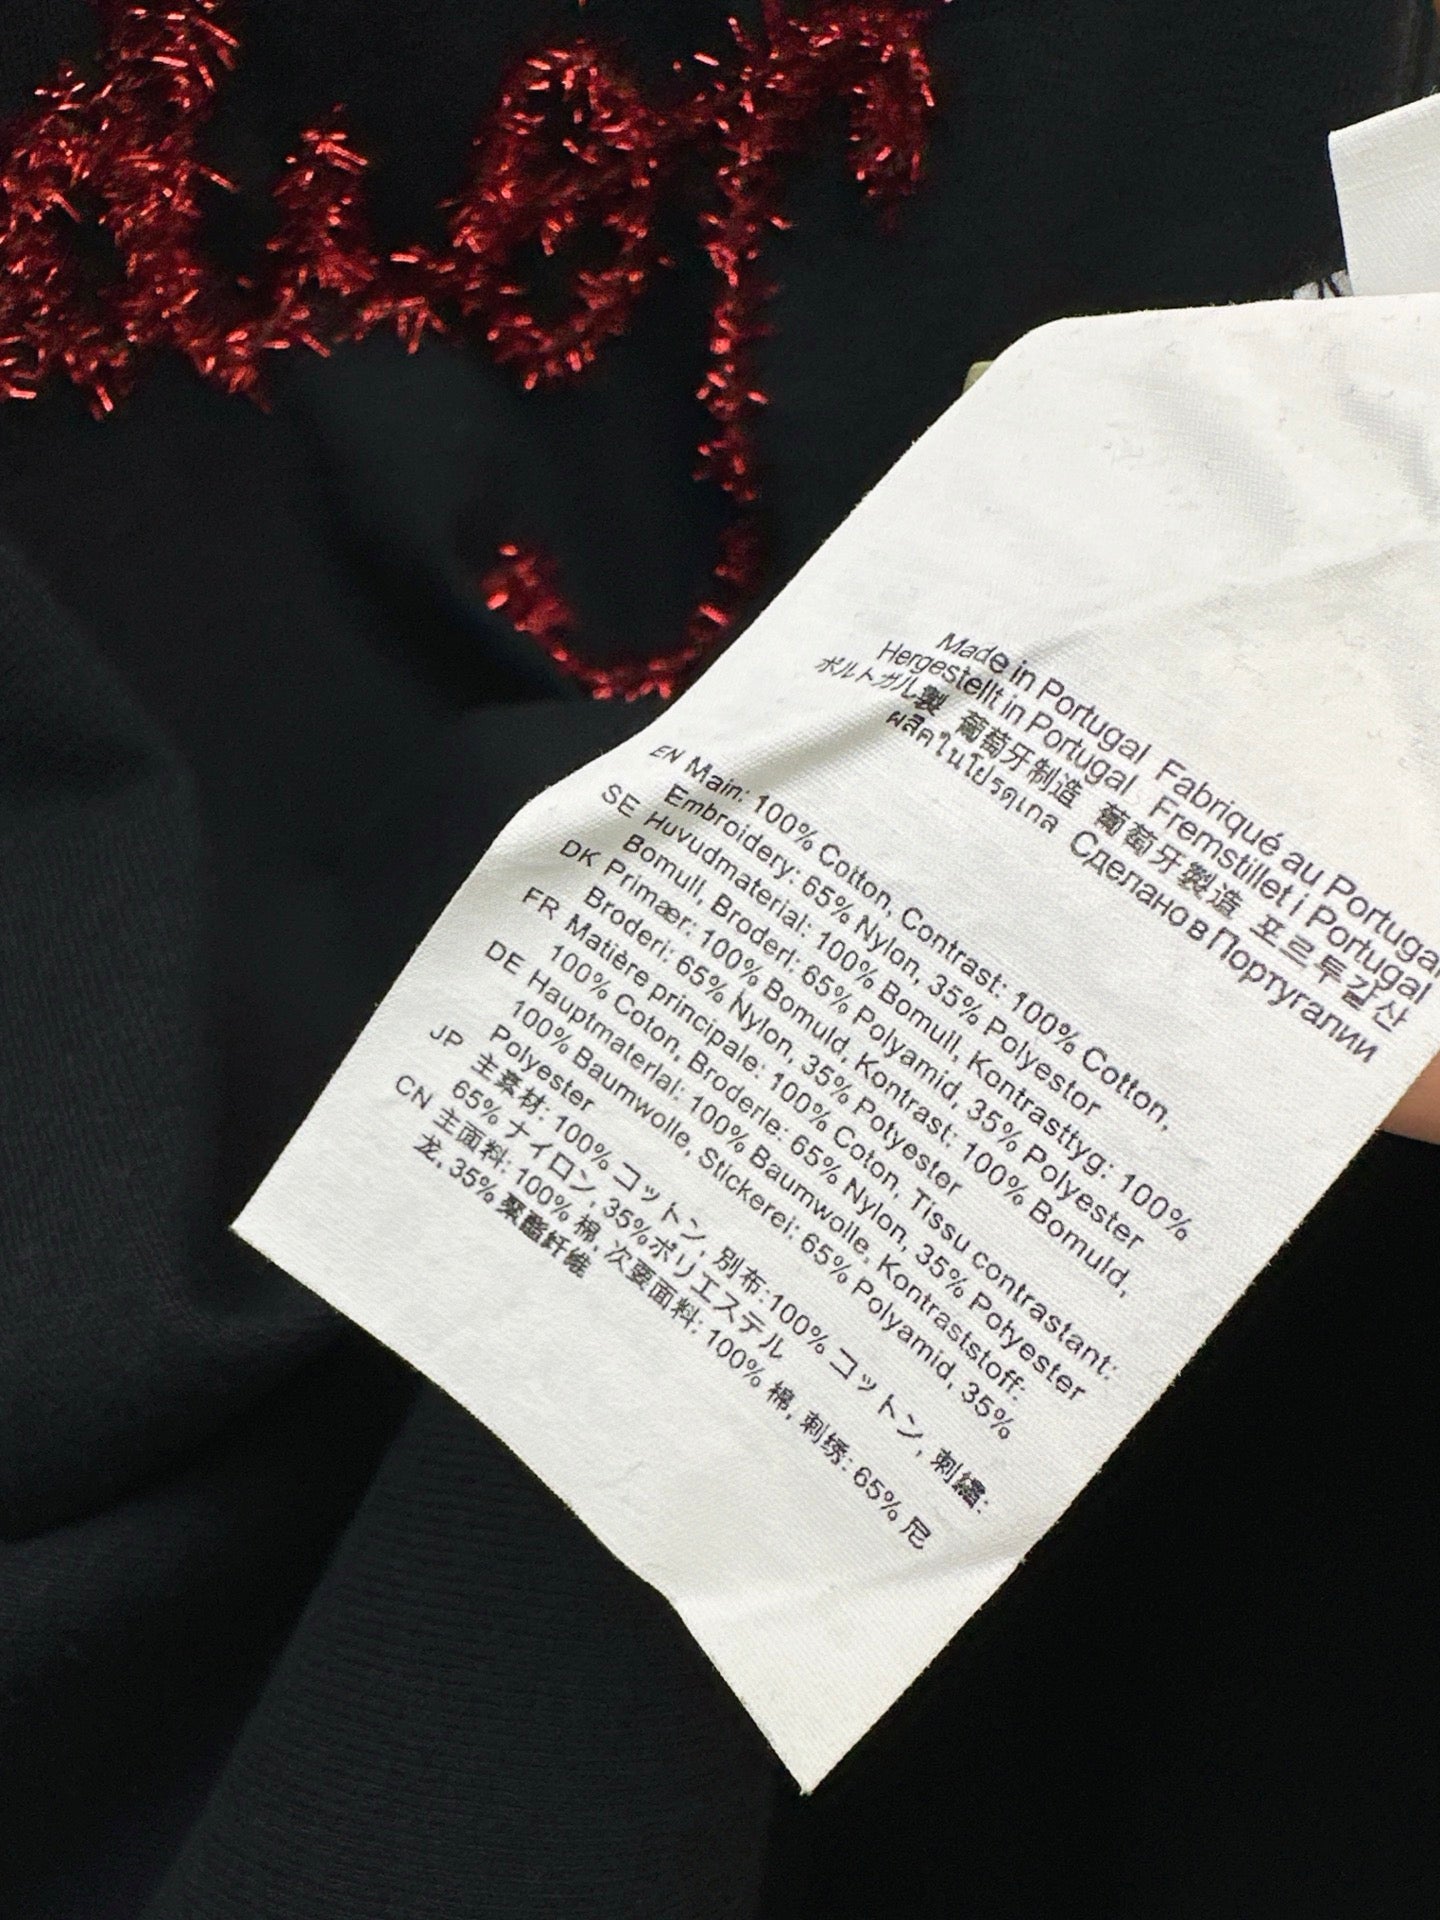 Made in Portugal Fabriqué au Portugal
Hergestellt in Portugal Fremstillet i Portugal
ポルトガル製 葡萄牙制造 葡萄牙製造 포르투갈산
ผลิตในโปรตุเกส Сделано в Португалии
EN Main: 100% Cotton, Contrast: 100% Cotton,
Embroidery: 65% Nylon, 35% Polyestor
SE Huvudmaterial: 100% Bomull, Kontrasttyg: 100%
Bomull, Broderi: 65% Polyamid, 35% Polyester
DK Primær: 100% Bomuld, Kontrast: 100% Bomuld,
Broderi: 65% Nylon, 35% Polyester
FR Matière principale: 100% Coton, Tissu contrastant:
100% Coton, Broderie: 65% Nylon, 35% Polyester
DE Hauptmaterial: 100% Baumwolle, Kontraststoff:
100% Baumwolle, Stickerei: 65% Polyamid, 35%
Polyester
JP 主素材: 100% コットン, 別布:100% コットン, 刺繡:
65% ナイロン, 35%ポリエステル
CN 主面料: 100% 棉, 次要面料: 100% 棉, 刺绣: 65% 尼
龙, 35% 聚酯纤维